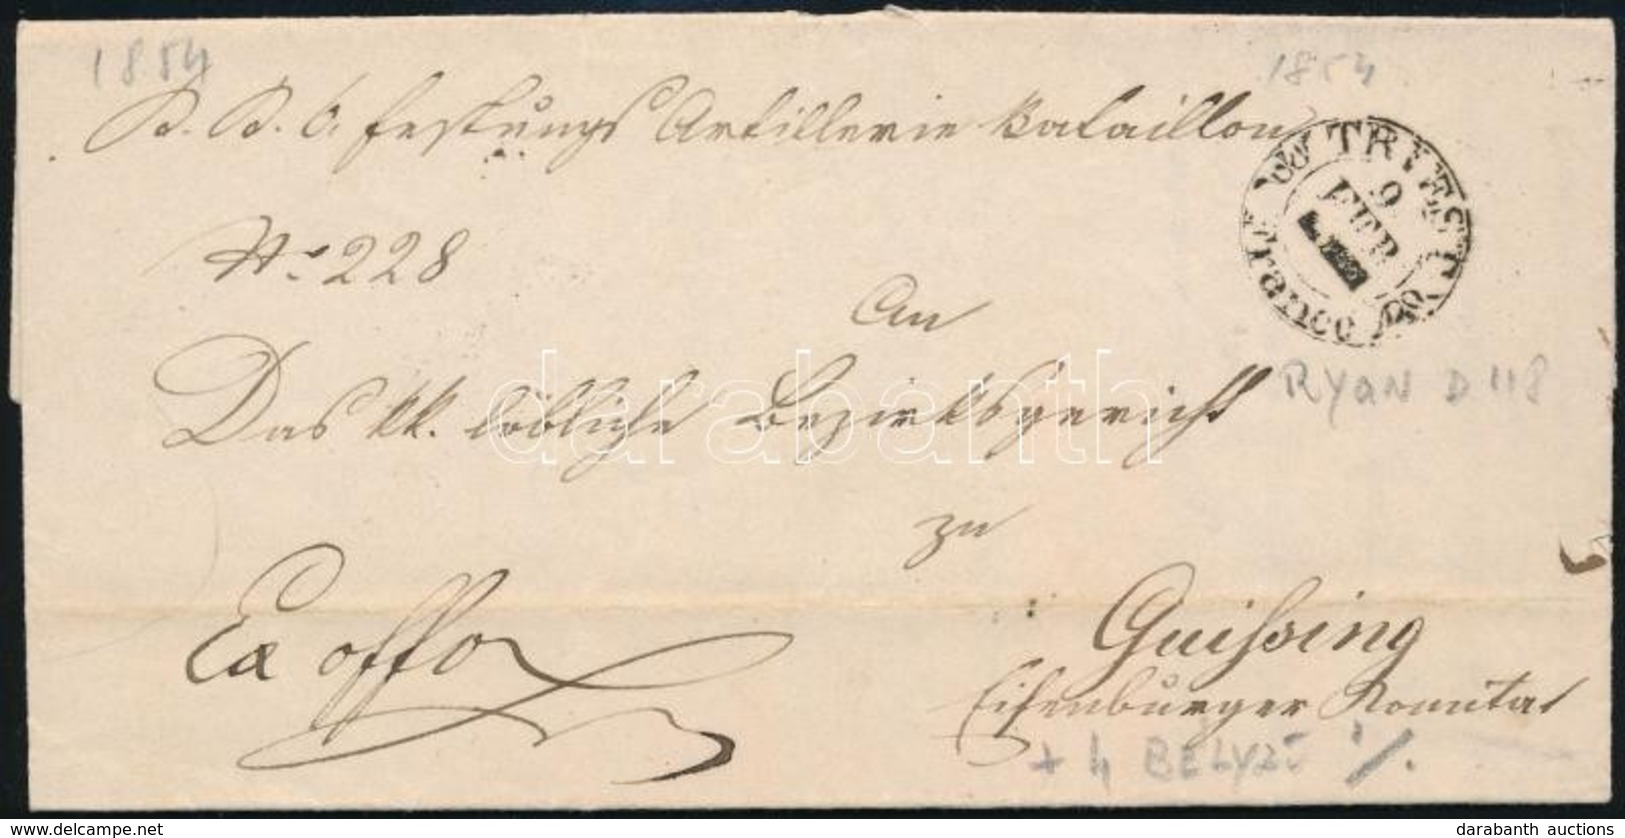 1854
1854
K. K. 6. Festungs Artillerie Bataillon
TRIEST
9
FEB
Franco
No 228
An
Das kk. löbliche Bezirksgericht
darabanth
RYAN D 118
zu
Ex offo
Guissing
Eisenburger Komitat
+ h BELYZŐ
darabanth auctions